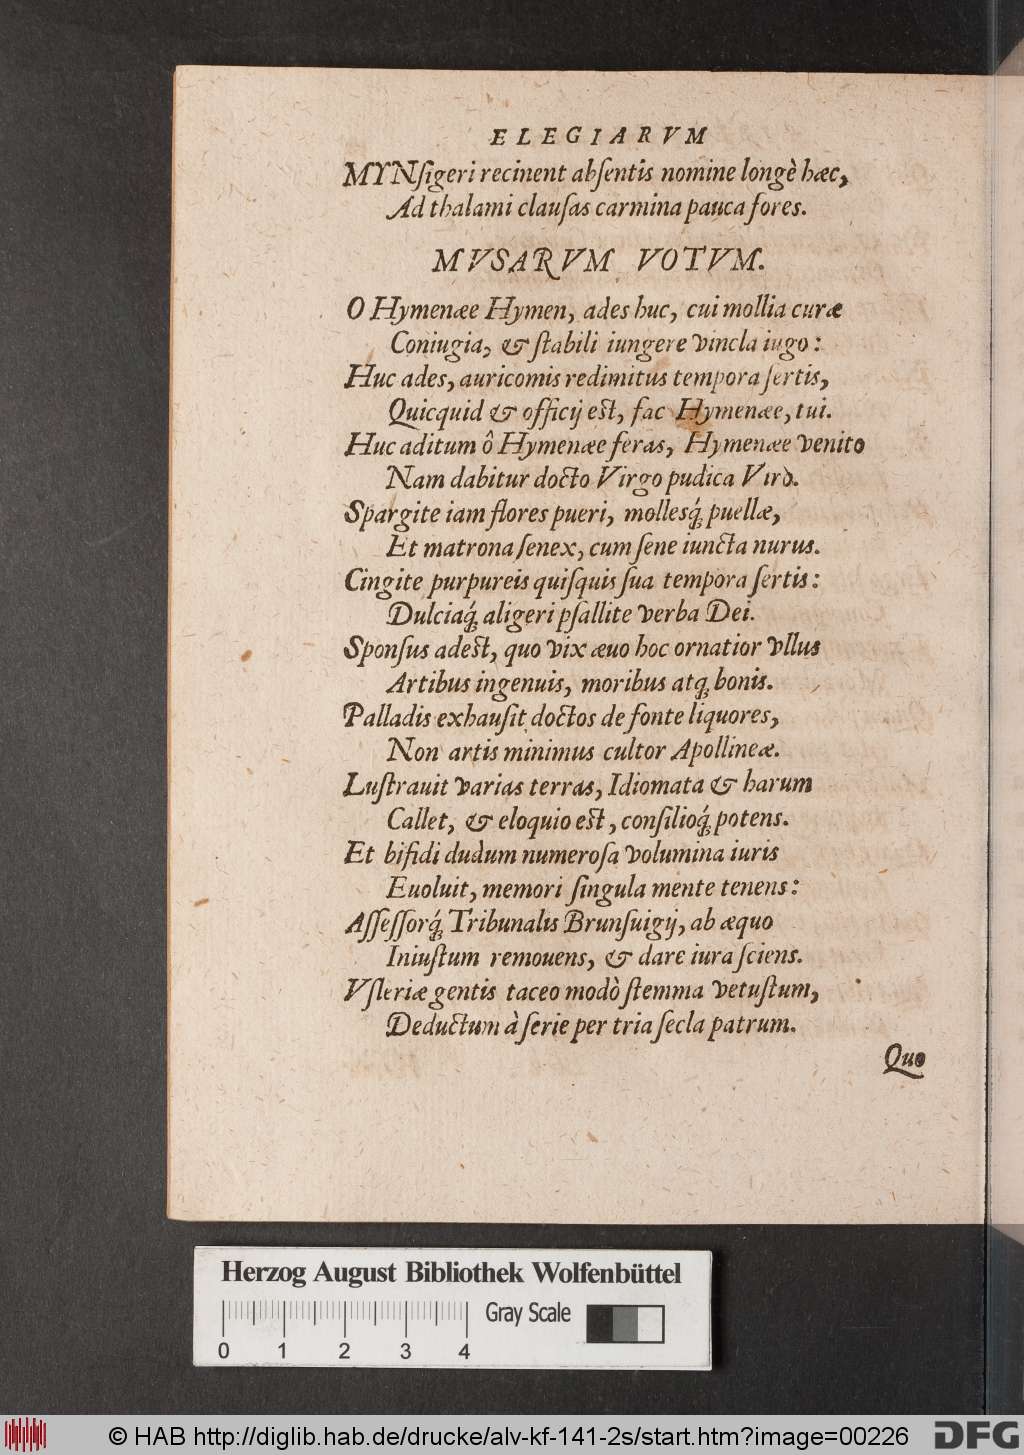 ELEGIARVM
MYNſigeri recinent abſentis nomine longè hæc,
Ad thalami clauſas carmina pauca fores.
MVSARVM VOTVM.
O Hymenæe Hymen, ades huc, cui mollia curæ
Coniugia, & ſtabili iungere vincla iugo:
Huc ades, auricomis redimitus tempora ſertis,
Quicquid & officij eſt, fac Hymenæe, tui.
Huc aditum ô Hymenæe feras, Hymenæe venito
Nam dabitur docto Virgo pudica Virò.
Spargite iam flores pueri, mollesq́; puellæ,
Et matrona ſenex, cum ſene iuncta nurus.
Cingite purpureis quiſquis ſua tempora ſertis:
Dulciaq́; aligeri pſallite verba Dei.
Sponſus adeſt, quo vix æuo hoc ornatior vllus
Artibus ingenuis, moribus atq; bonis.
Palladis exhauſit doctos de fonte liquores,
Non artis minimus cultor Apollineæ.
Luſtrauit varias terras, Idiomata & harum
Callet, & eloquio eſt, conſilioq́; potens.
Et bifidi dudum numeroſa volumina iuris
Euoluit, memori ſingula mente tenens:
Aſſeſſorq́; Tribunalis Brunſuigij, ab æquo
Iniuſtum remouens, & dare iura ſciens.
Vſleriæ gentis taceo modò ſtemma vetuſtum,
Deductum à ſerie per tria ſecla patrum.
Quo
Herzog August Bibliothek Wolfenbüttel
Gray Scale
0 1 2 3 4
© HAB http://diglib.hab.de/drucke/alv-kf-141-2s/start.htm?image=00226
DFG